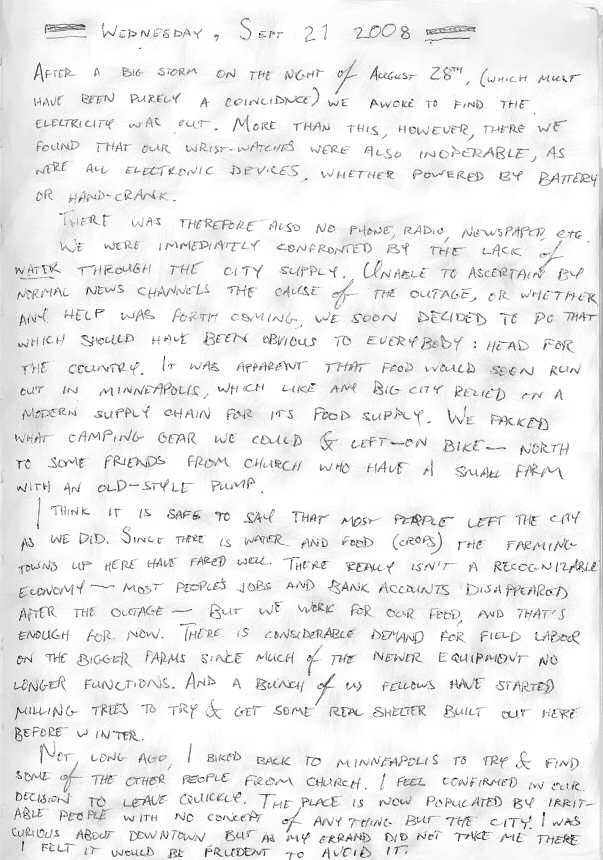 WEDNESDAY, SEPT 21 2008
AFTER A BIG STORM ON THE NIGHT of AUGUST 28TH, (WHICH MUST
HAVE BEEN PURELY A COINCIDNCE) WE AWOKE TO FIND THE
ELECTRICITY WAS OUT. MORE THAN THIS, HOWEVER, THERE WE
FOUND THAT OUR WRIST-WATCHES WERE ALSO INOPERABLE, AS
WERE ALL ELECTRONIC DEVICES, WHETHER POWERED BY BATTERY
OR HAND-CRANK.
THERE WAS THEREFORE ALSO NO PHONE, RADIO, NEWSPAPER, etc.
WE WERE IMMEDIATELY CONFRONTED BY THE LACK of
WATER THROUGH THE CITY SUPPLY. UNABLE TO ASCERTAIN BY
NORMAL NEWS CHANNELS THE CAUSE of THE OUTAGE, OR WHETHER
ANY HELP WAS FORTH COMING, WE SOON DECIDED TO DO THAT
WHICH SHOULD HAVE BEEN OBVIOUS TO EVERYBODY: HEAD FOR
THE COUNTRY. IT WAS APPARENT THAT FOOD WOULD SOON RUN
OUT IN MINNEAPOLIS, WHICH LIKE ANY BIG CITY RELIED ON A
MODERN SUPPLY CHAIN FOR ITS FOOD SUPPLY. WE PACKED
WHAT CAMPING GEAR WE COULD & LEFT—ON BIKE— NORTH
TO SOME FRIENDS FROM CHURCH WHO HAVE A SMALL FARM
WITH AN OLD-STYLE PUMP.
I THINK IT IS SAFE TO SAY THAT MOST PEOPLE LEFT THE CITY
AS WE DID. SINCE THERE IS WATER AND FOOD (CROPS) THE FARMING
TOWNS UP HERE HAVE FARED WELL. THERE REALLY ISN'T A RECOGNIZABLE
ECONOMY — MOST PEOPLE'S JOBS AND BANK ACCOUNTS DISAPPEARED
AFTER THE OUTAGE — BUT WE WORK FOR OUR FOOD, AND THAT'S
ENOUGH FOR NOW. THERE IS CONSIDERABLE DEMAND FOR FIELD LABOUR
ON THE BIGGER FARMS SINCE MUCH of THE NEWER EQUIPMENT NO
LONGER FUNCTIONS. AND A BUNCH of US FELLOWS HAVE STARTED
MILLING TREES TO TRY & GET SOME REAL SHELTER BUILT OUT HERE
BEFORE WINTER.
NOT LONG AGO, I BIKED BACK TO MINNEAPOLIS TO TRY & FIND
SOME of THE OTHER PEOPLE FROM CHURCH. I FEEL CONFIRMED IN OUR
DECISION TO LEAVE QUICKLY. THE PLACE IS NOW POPULATED BY IRRIT-
ABLE PEOPLE WITH NO CONCEPT of ANYTHING BUT THE CITY. I WAS
CURIOUS ABOUT DOWNTOWN BUT AS MY ERRAND DID NOT TAKE ME THERE
I FELT IT WOULD BE PRUDENT TO AVOID IT.